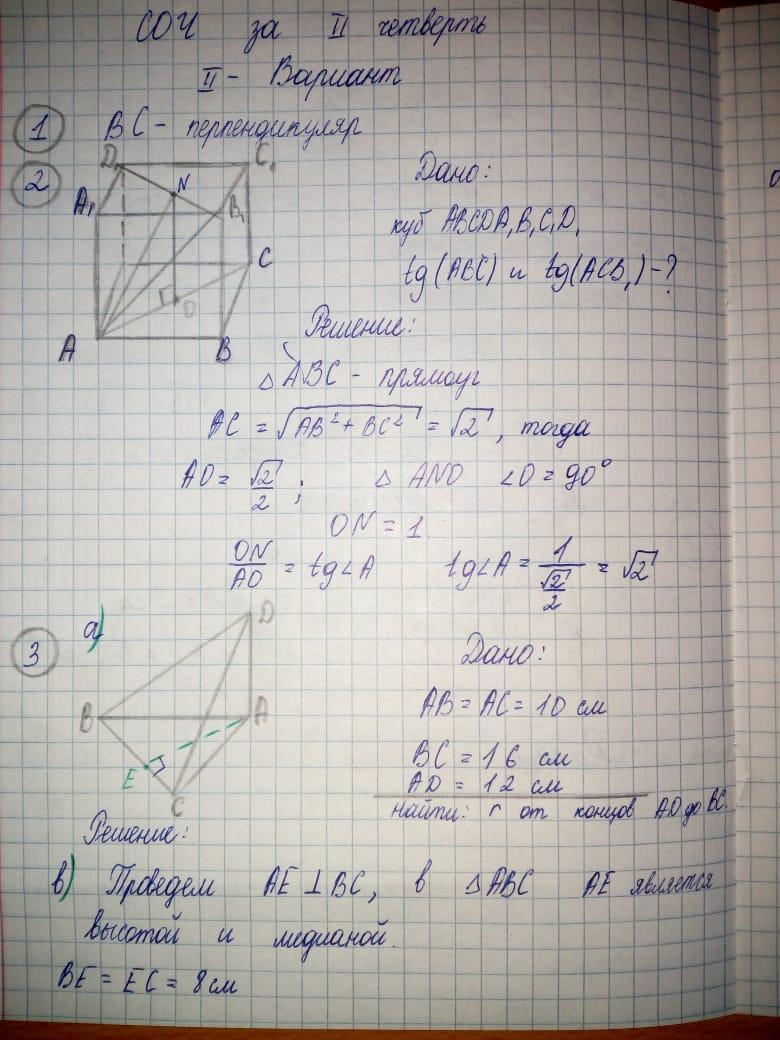 СОЧ за II четверть
II - Вариант
1 BC - перпендикуляр
2
D₁ C₁
N
A₁ B₁
C
O
A B
Дано:
куб ABCDA₁B₁C₁D₁
tg(ABC) и tg(ACB₁) - ?
Решение:
△ ABC - прямоуг
AC = √AB² + BC² = √2, тогда
AO = √2/2 ; △ ANO ∠O = 90°
ON = 1
ON/AO = tg∠A tg∠A = 1/(√2/2) = √2
3 а)
D
B A
E
C
Дано:
AB = AC = 10 см
BC = 16 см
AD = 12 см
Найти: r от концов AD до BC.
Решение:
в) Проведем AE ⊥ BC, в △ABC AE является
высотой и медианой.
BE = EC = 8 см